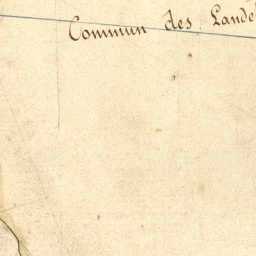 Commun des Lande